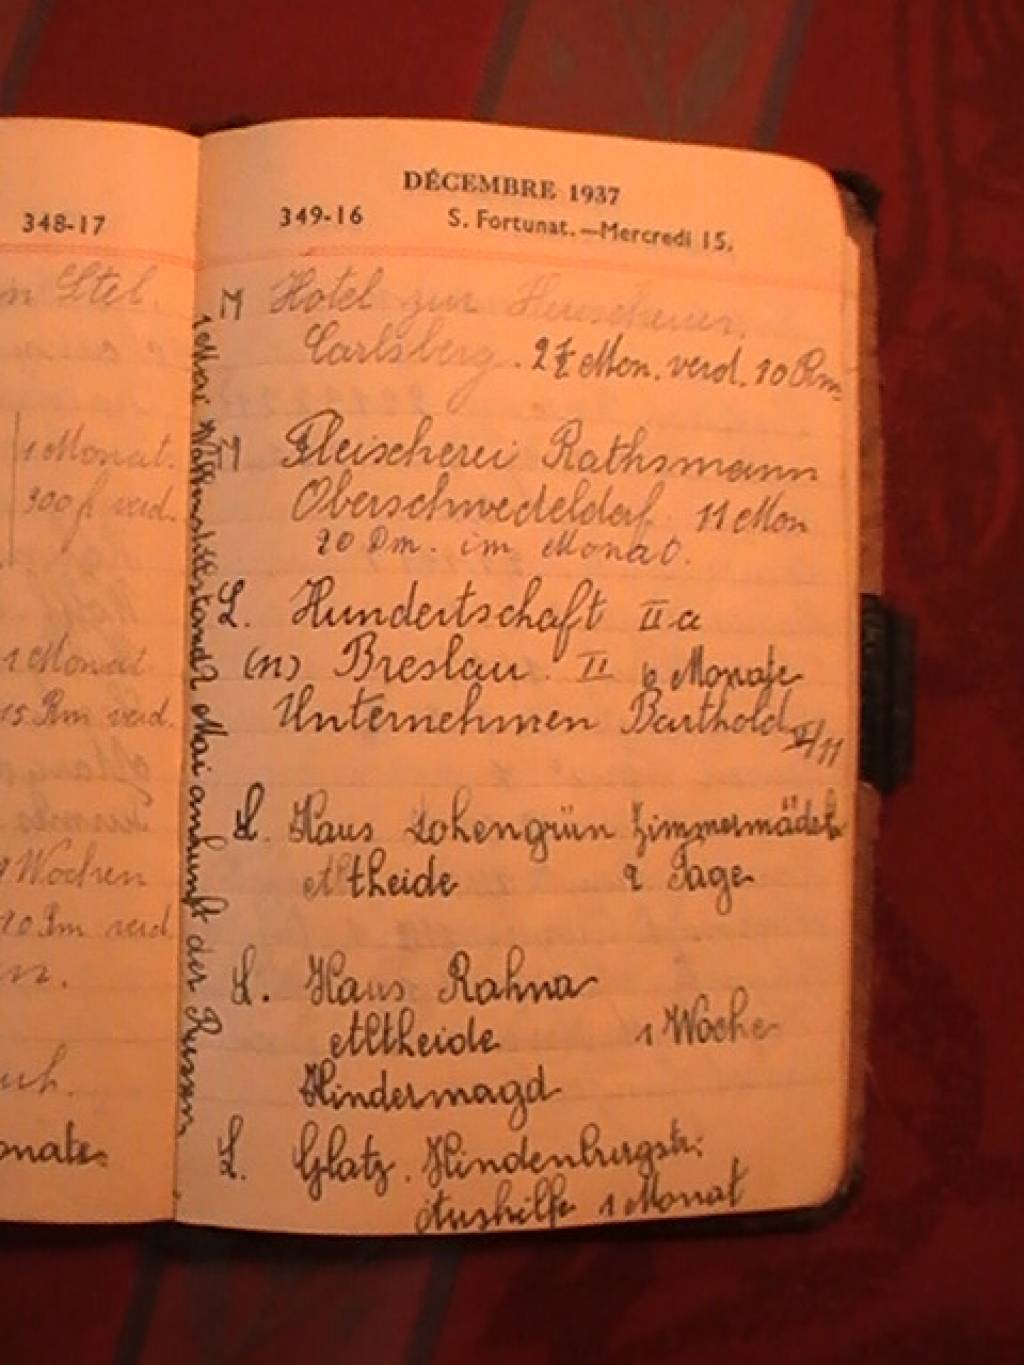 348-17
n Stel.
1 Monat.
300 f verd.
1 Monat
15 Rm verd.
9 Wochen
10 Rm verd.
en.
uch.
onate
DÉCEMBRE 1937
349-16 S. Fortunat.—Mercredi 15.
M Hotel zur Heuscheuer.
Carlsberg. 2½ Mon. verd. 10 Rm.
M Fleischerei Rathsmann
Oberschwedeldorf 11 Mon
20 Rm. im Monat.
L. Hundertschaft II.a
(n) Breslau. II 6 Monate
Unternehmen Barthold
L. Haus Lohengrün Zimmermädch
Altheide 2 Tage
L. Haus Rahna
Altheide 1 Woche
Kindermagd
L. Glatz. Hindenburgstr:
Aushilfe 1 Monat
1 Mai Waffenstillstand 2 Mai ankunft der Russen